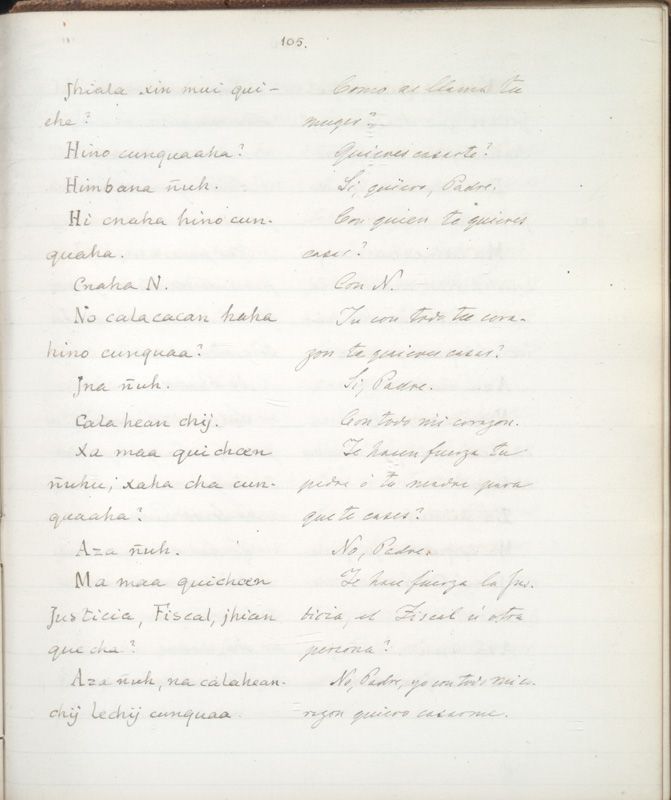 105.
Jhiala xin mui qui-
che?
Hino cunquaaha?
Himbana ñuh.
Hi cnaha hino cun-
quaha.
Cnaha N.
No calacacan haha
hino cunquaa?
Jna ñuh.
Cala hean chij.
Xa maa quichœn
ñuhu; xaha cha cun-
quaaha?
Aza ñuh.
Ma maa quichœn
Justicia, Fiscal, jhian
que cha?
Aza ñuh, na calahean-
chij lechij cunquaa.
Como as llama tu
muger?
Quieres casarte?
Si, quiero, Padre.
Con quien te quieres
casar?
Con N.
Tu con todo tu cora-
zon te quieres casar?
Si, Padre.
Con todo mi corazon.
Te hacen fuerza tu
padre ó tu madre para
que te cases?
No, Padre.
Te hace fuerza la Jus-
ticia, el Fiscal ú otra
persona?
No, Padre, yo con todo mi co-
razon quiero casarme.